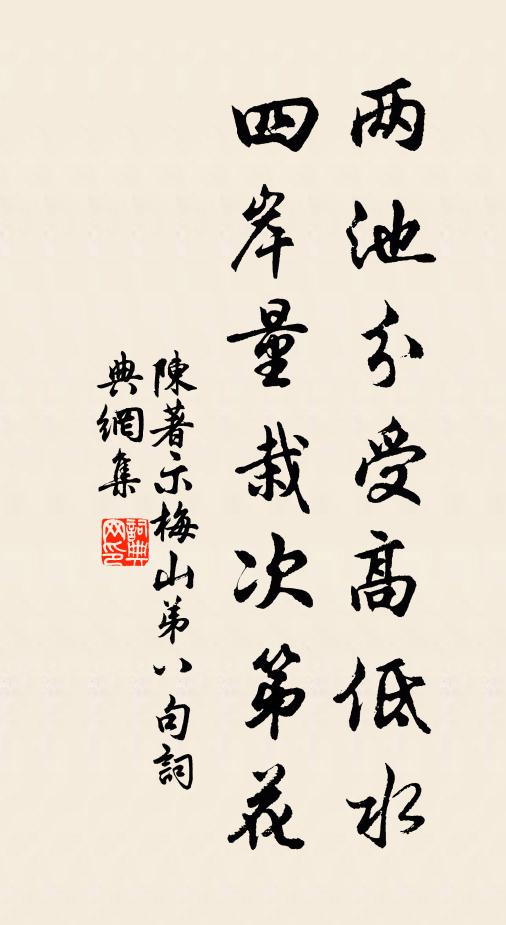 两池分受高低水
四岸量栽次第花
陳著示梅山弟八句詞
典網集
詞典网印